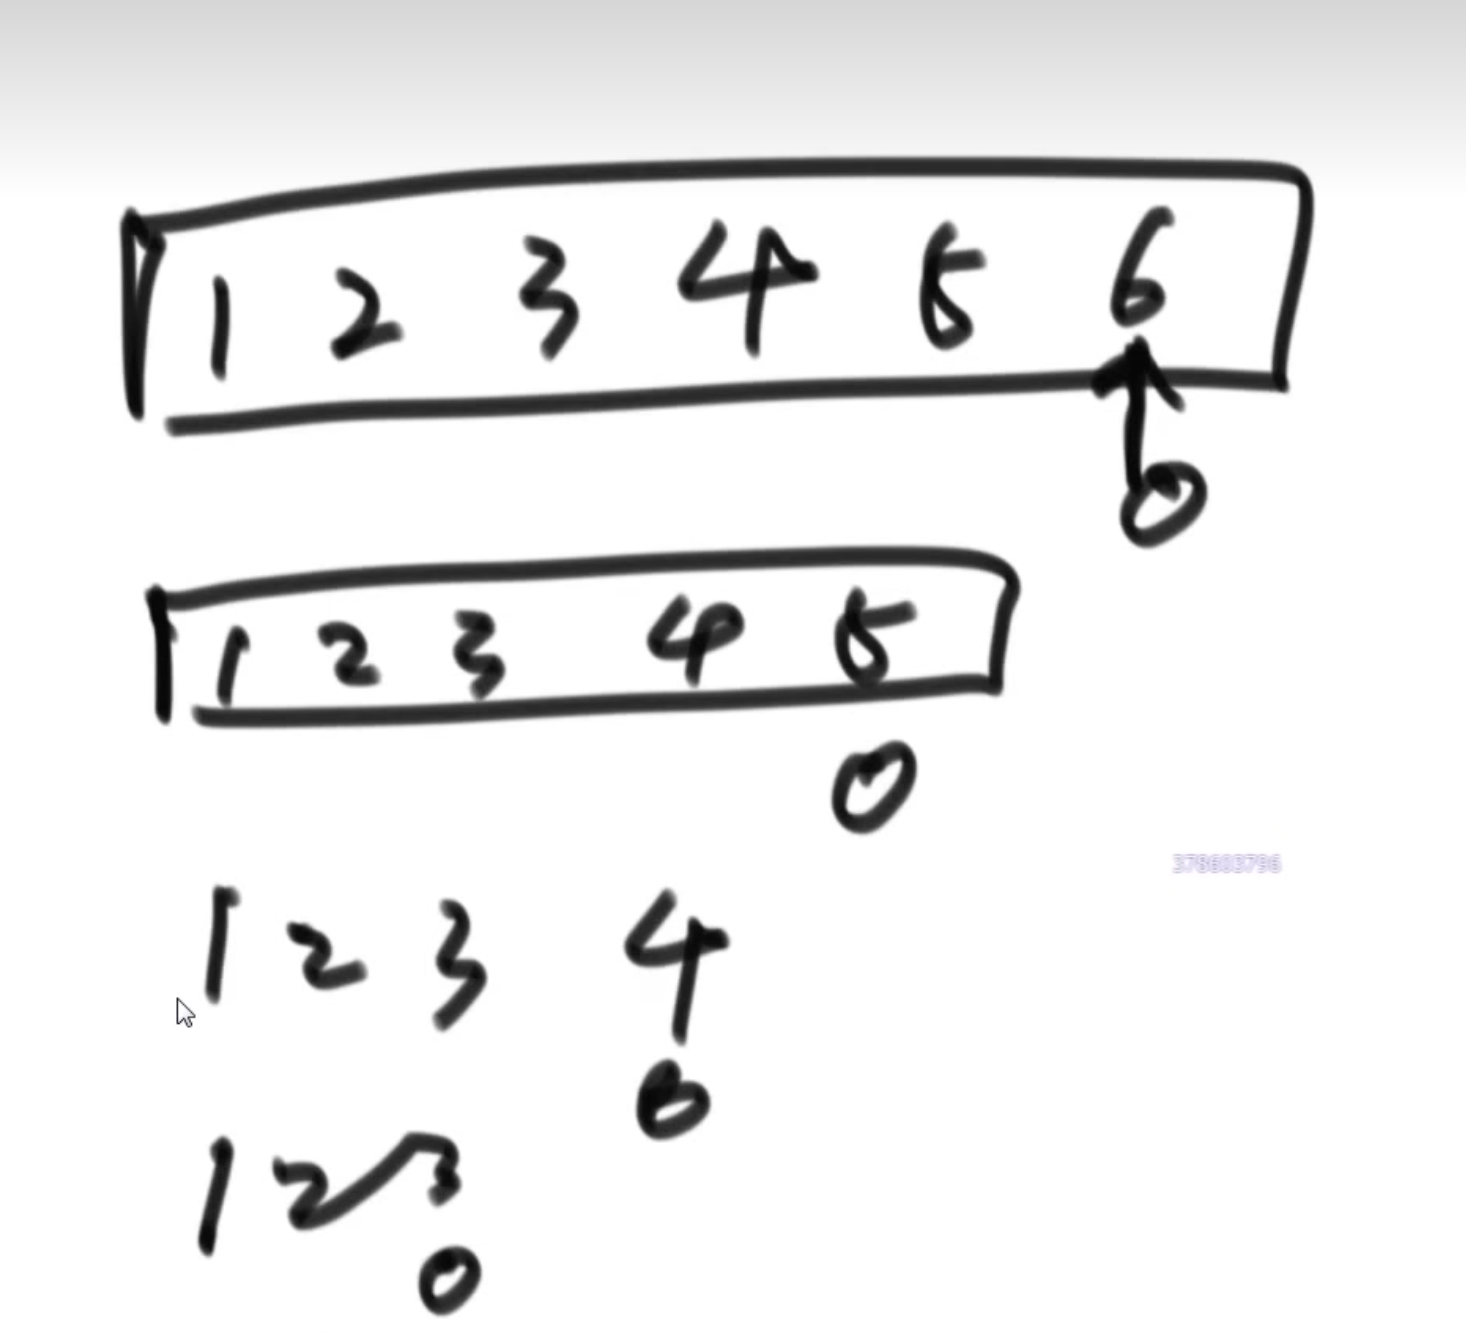 1 2 3 4 5 6
0
1 2 3 4 5
0
378603796
1 2 3 4
0
1 2 3
0